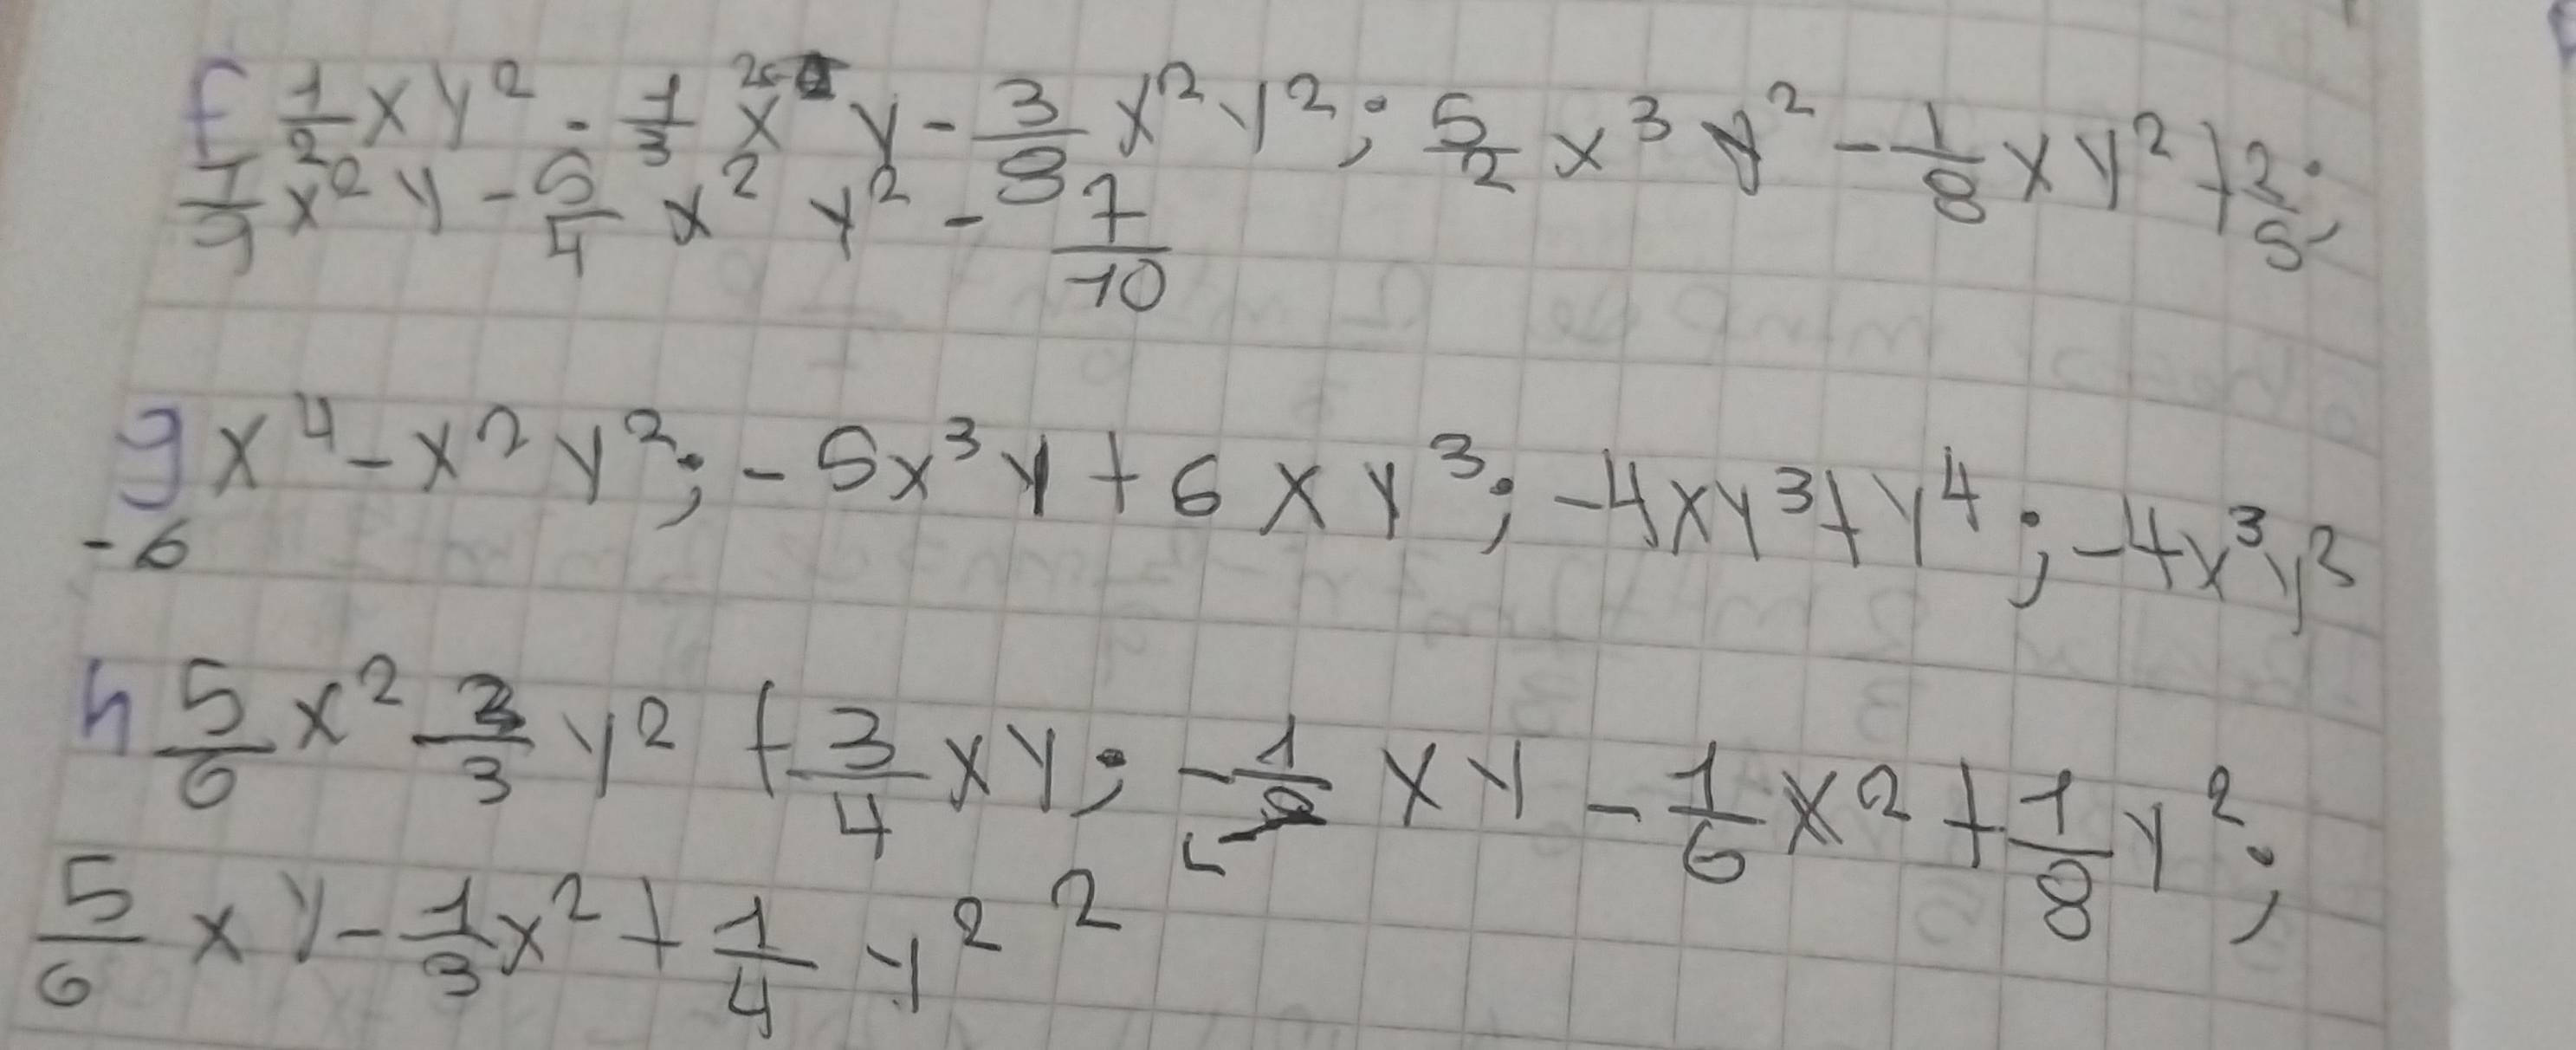 f 1/2 x y² - 1/3 x² y - 3/8 x² y² ; 5/2 x³ y² - 1/8 x y² + 2/5 ;
1/9 x² y - 5/4 x² y² - 7/10
g x⁴ - x² y² ; - 5x³ y + 6 x y³ ; -4xy³ + y⁴ ; -4x³y³
-6
h 5/6 x² 2/3 y² + 3/4 xy ; - 1/2 xy - 1/6 x² + 1/8 y² ;
5/6 x y - 1/3 x² + 1/4 y² ²